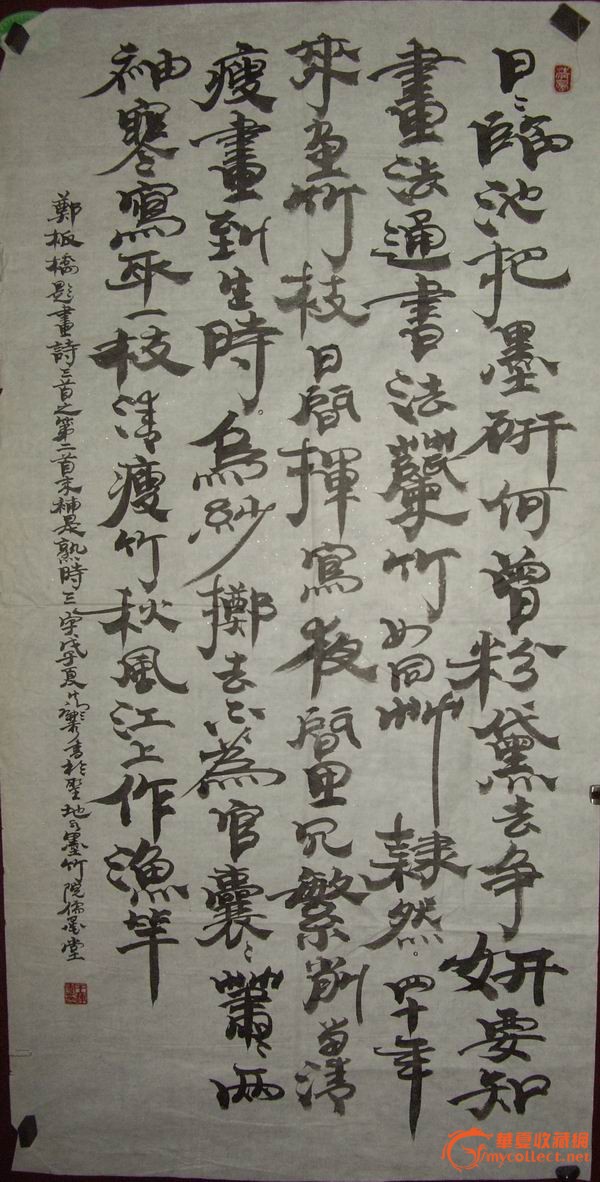 日〻臨池把墨研何曾粉黛去爭妍要知
畫法通書法蘭竹如同草隸然四十年
來畫竹枝日間揮寫夜間思冗繁削留清
瘦畫到生時烏紗擲去不為官囊〻蕭〻兩
袖寒寫取一枝清瘦竹秋風江上作漁竿
鄭板橋題畫詩三首之第二首末補是熟時三字戊子夏 書於聖地 墨竹院儒墨堂
華夏收藏網
mycollect.net